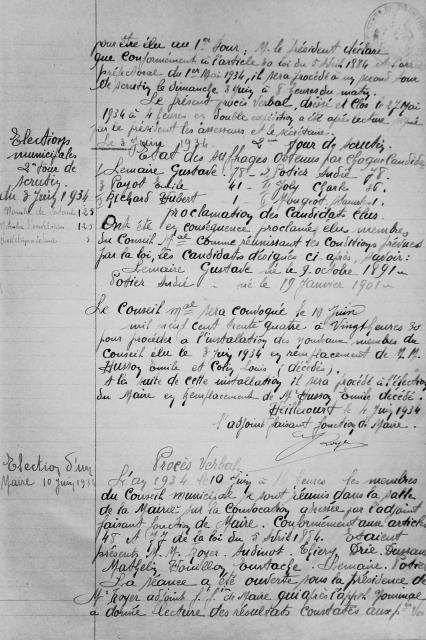 pour être élu au 1er Tour; M. le président déclare
que Conformément à l'article 30 loi du 5 Avril 1884 et l'arrêté
préfectoral du 1er Mai 1934, il sera procédé à un second Tour
de scrutin le dimanche 3 Juin à 8 heures du matin.
Le présent procès Verbal, dressé et Clos le 27 Mai
1934 à 4 heures en double expédition a été après lecture signé
par le président les assesseurs et le secrétaire.
Elections
municipales
2me Tour de
scrutin
du 3 Juin 1934
Le 3 Juin 1934 2me Tour de scrutin.
Etat des suffrages Obtenus par Chaque Candidat
1 Lemaire Gustave 78 Potier André 78.
3 Payot Emile 41 Joly Charles 36.
Richard Hubert 1 1.
proclamation des Candidats élus.
Ont Eté en conséquence proclamés élus membres
du Conseil Mal Comme réunissant les Conditions prévues
par la loi, les Candidats désignés ci après, savoir:
Lemaire Gustave né le 9 octobre 1891
Potier André né le 19 Janvier 1901
Le Conseil Mal sera convoqué le 10 Juin
mil neuf Cent trente quatre à Vingt heures 30
pour procéder à l'installation des nouveaux membres du
Conseil élu le 3 Juin 1934 en remplacement de M. M.
Husson Emile et Colin Louis (décédés).
A la suite de cette installation il sera procédé à l'élection
du Maire en Remplacement de Mr Husson Emile décédé.
Heillecourt le 4 Juin 1934
l'adjoint faisant fonction de Maire.
Election d'un
Maire 10 Juin 1934
Procès Verbal
L'an 1934 le 10 Juin à heures les membres
du Conseil municipal se sont réunis dans la salle
de la Mairie sur la Convocation adressée par l'adjoint
faisant fonction de Maire. Conformément aux articles
48 et 77 de la loi du 5 Avril 1884. Etaient
présents M. M. Royer. Audinot. Thiery.
Mathelin Eustache. Lemaire. Potier
La séance a Eté ouverte sous la présidence de
Mr Royer adjoint f. f. de Maire qui après l'appel nominal
a donné lecture des résultats constatés aux